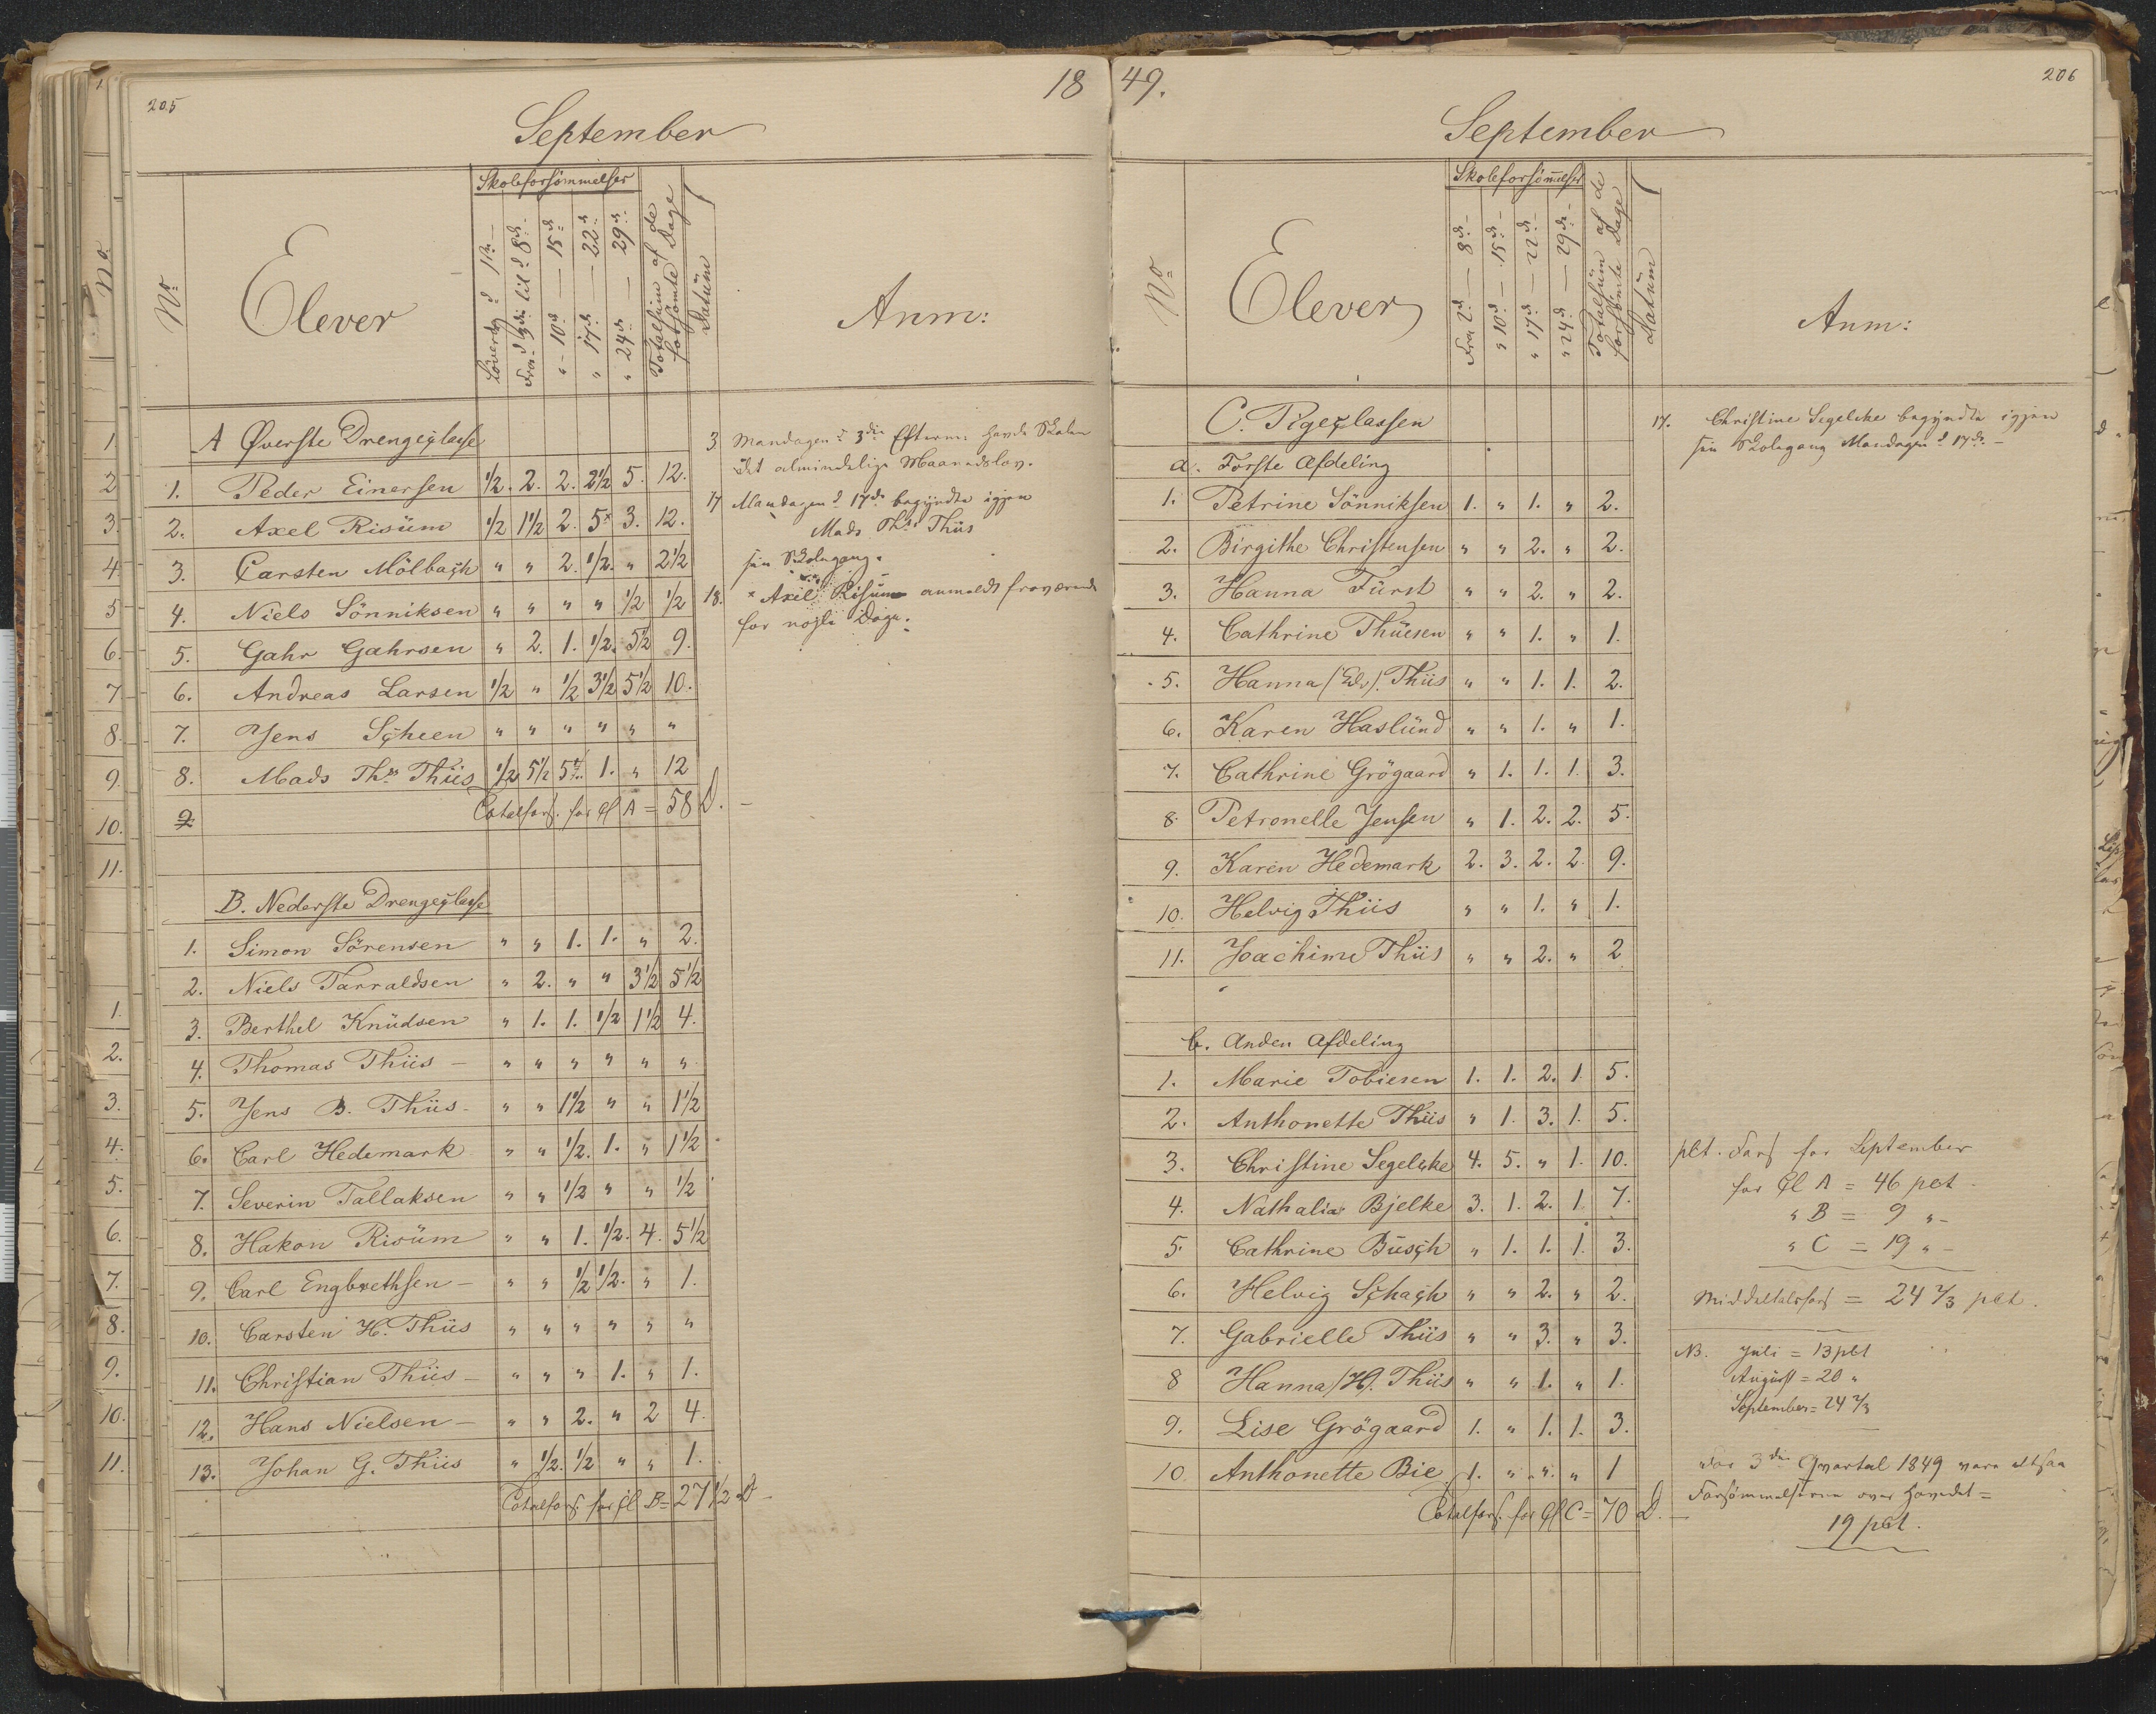 205
18
September
No
Elever
Skoleforsömmelser
Löverdg d 1ste
Fra d 3die til d 8de
" - 10de — 15de
" 17de — 22de
" 24de — 29de
Totalsüm af de forsömte Dage
Datüm
Anm:
A Øverste Drengeclasse
1. Peder Einersen ½. 2. 2. 2½ 5. 12.
2. Axel Risüm ½ 1½ 2. 5x 3. 12.
3. Carsten Mölbach " " 2. ½. " 2½
4. Niels Sönniksen " " " " ½ ½
5. Gahr Gahrsen " 2. 1. ½. 5½ 9.
6. Andreas Larsen ½ " ½ 3½ 5½ 10.
7. Jens Scheen " " " " " "
8. Mads Ths Thiis ½ 5½ 5 1. " 12
9 Totalfors. for Cl A = 58 D. -
B. Nederste Drengeclasse
1. Simon Sörensen " " 1. 1. " 2.
2. Niels Tarraldsen " 2. " " 3½ 5½
3. Berthel Knüdsen " 1. 1. ½ 1½ 4.
4. Thomas Thiis - " " " " " "
5. Jens B. Thiis - " " 1½ " " 1½
6. Carl Hedemark " " ½. 1. " 1½
7. Severin Tallaksen " " ½ " " ½
8. Hakon Risüm " " 1. ½. 4. 5½
9. Carl Engbrethsen - " " ½ ½. " 1.
10. Carsten H. Thiis " " " " " "
11. Christian Thiis - " " " 1. " 1.
12. Hans Nielsen - " " 2. " 2 4.
13. Johan G. Thiis " ½. ½ " " 1.
Totalfors. for Cl B = 27½ D -
3 Mandagen d 3die Efterm: havde Skolen
det almindelige Maanedslov.
17 Mandagen d 17de begyndte igjen
Mads Ths Thiis
sin Skolegang.
18. x Axel Risüm anmeldt fraværende
for nogle Dage.
49.
206
September
No
Elever
Skoleforsömelser
Fra 2d — 8de -
" 10de — 15de -
" 17de — 22de -
" 24de — 29de -
Totalsüm af de forsömte Dage
Datüm
Anm:
C. Pigeclassen
a. Første Afdeling
1. Petrine Sönniksen 1. " 1. " 2.
2. Birgithe Christensen " " 2. " 2.
3. Hanna Fürst " " 2. " 2.
4. Cathrine Thüesen " " 1. " 1.
5. Hanna (Edv). Thiis " " 1. 1. 2.
6. Karen Haslünd " " 1. " 1.
7. Cathrine Grögaard " 1. 1. 1. 3.
8. Petronelle Jensen " 1. 2. 2. 5.
9. Karen Hedemark 2. 3. 2. 2. 9.
10. Helvig Thiis " " 1. " 1.
11. Joachime Thiis " " 2. " 2
b. Anden Afdeling
1. Marie Tobiesen 1. 1. 2. 1 5.
2. Anthonette Thiis " 1. 3. 1. 5.
3. Christine Segelcke 4. 5. " 1. 10.
4. Nathalia Bjelke 3. 1. 2. 1 7.
5. Cathrine Büsch " 1. 1. 1. 3.
6. Helvig Schach " " 2. " 2.
7. Gabrielle Thiis " " 3. " 3.
8 Hanna (H). Thiis " " 1. " 1.
9. Lise Grögaard 1. " 1. 1. 3.
10. Anthonette Bie 1. " " " 1
Totalfors. for Cl C = 70 D. -
17. Christine Segelcke begyndte igjen
sin Skolegang Mandagen d 17de. -
pCt. Fors for September
for Cl A = 46 pct.
" B = 9 " -
" C = 19 " -
Middeltalsfors = 24⅔ pCt.
NB. Juli = 13 pCt
Aügüst = 20 "
September = 24⅔
For 3die Qvartal 1849 vare altsaa
Forsömmelserne over Hovedet =
19 pCt.
No
1
2
3.
4
5
6.
7
8
9.
10.
11.
1.
2.
3.
4.
5.
6.
7.
8.
9.
10.
11.